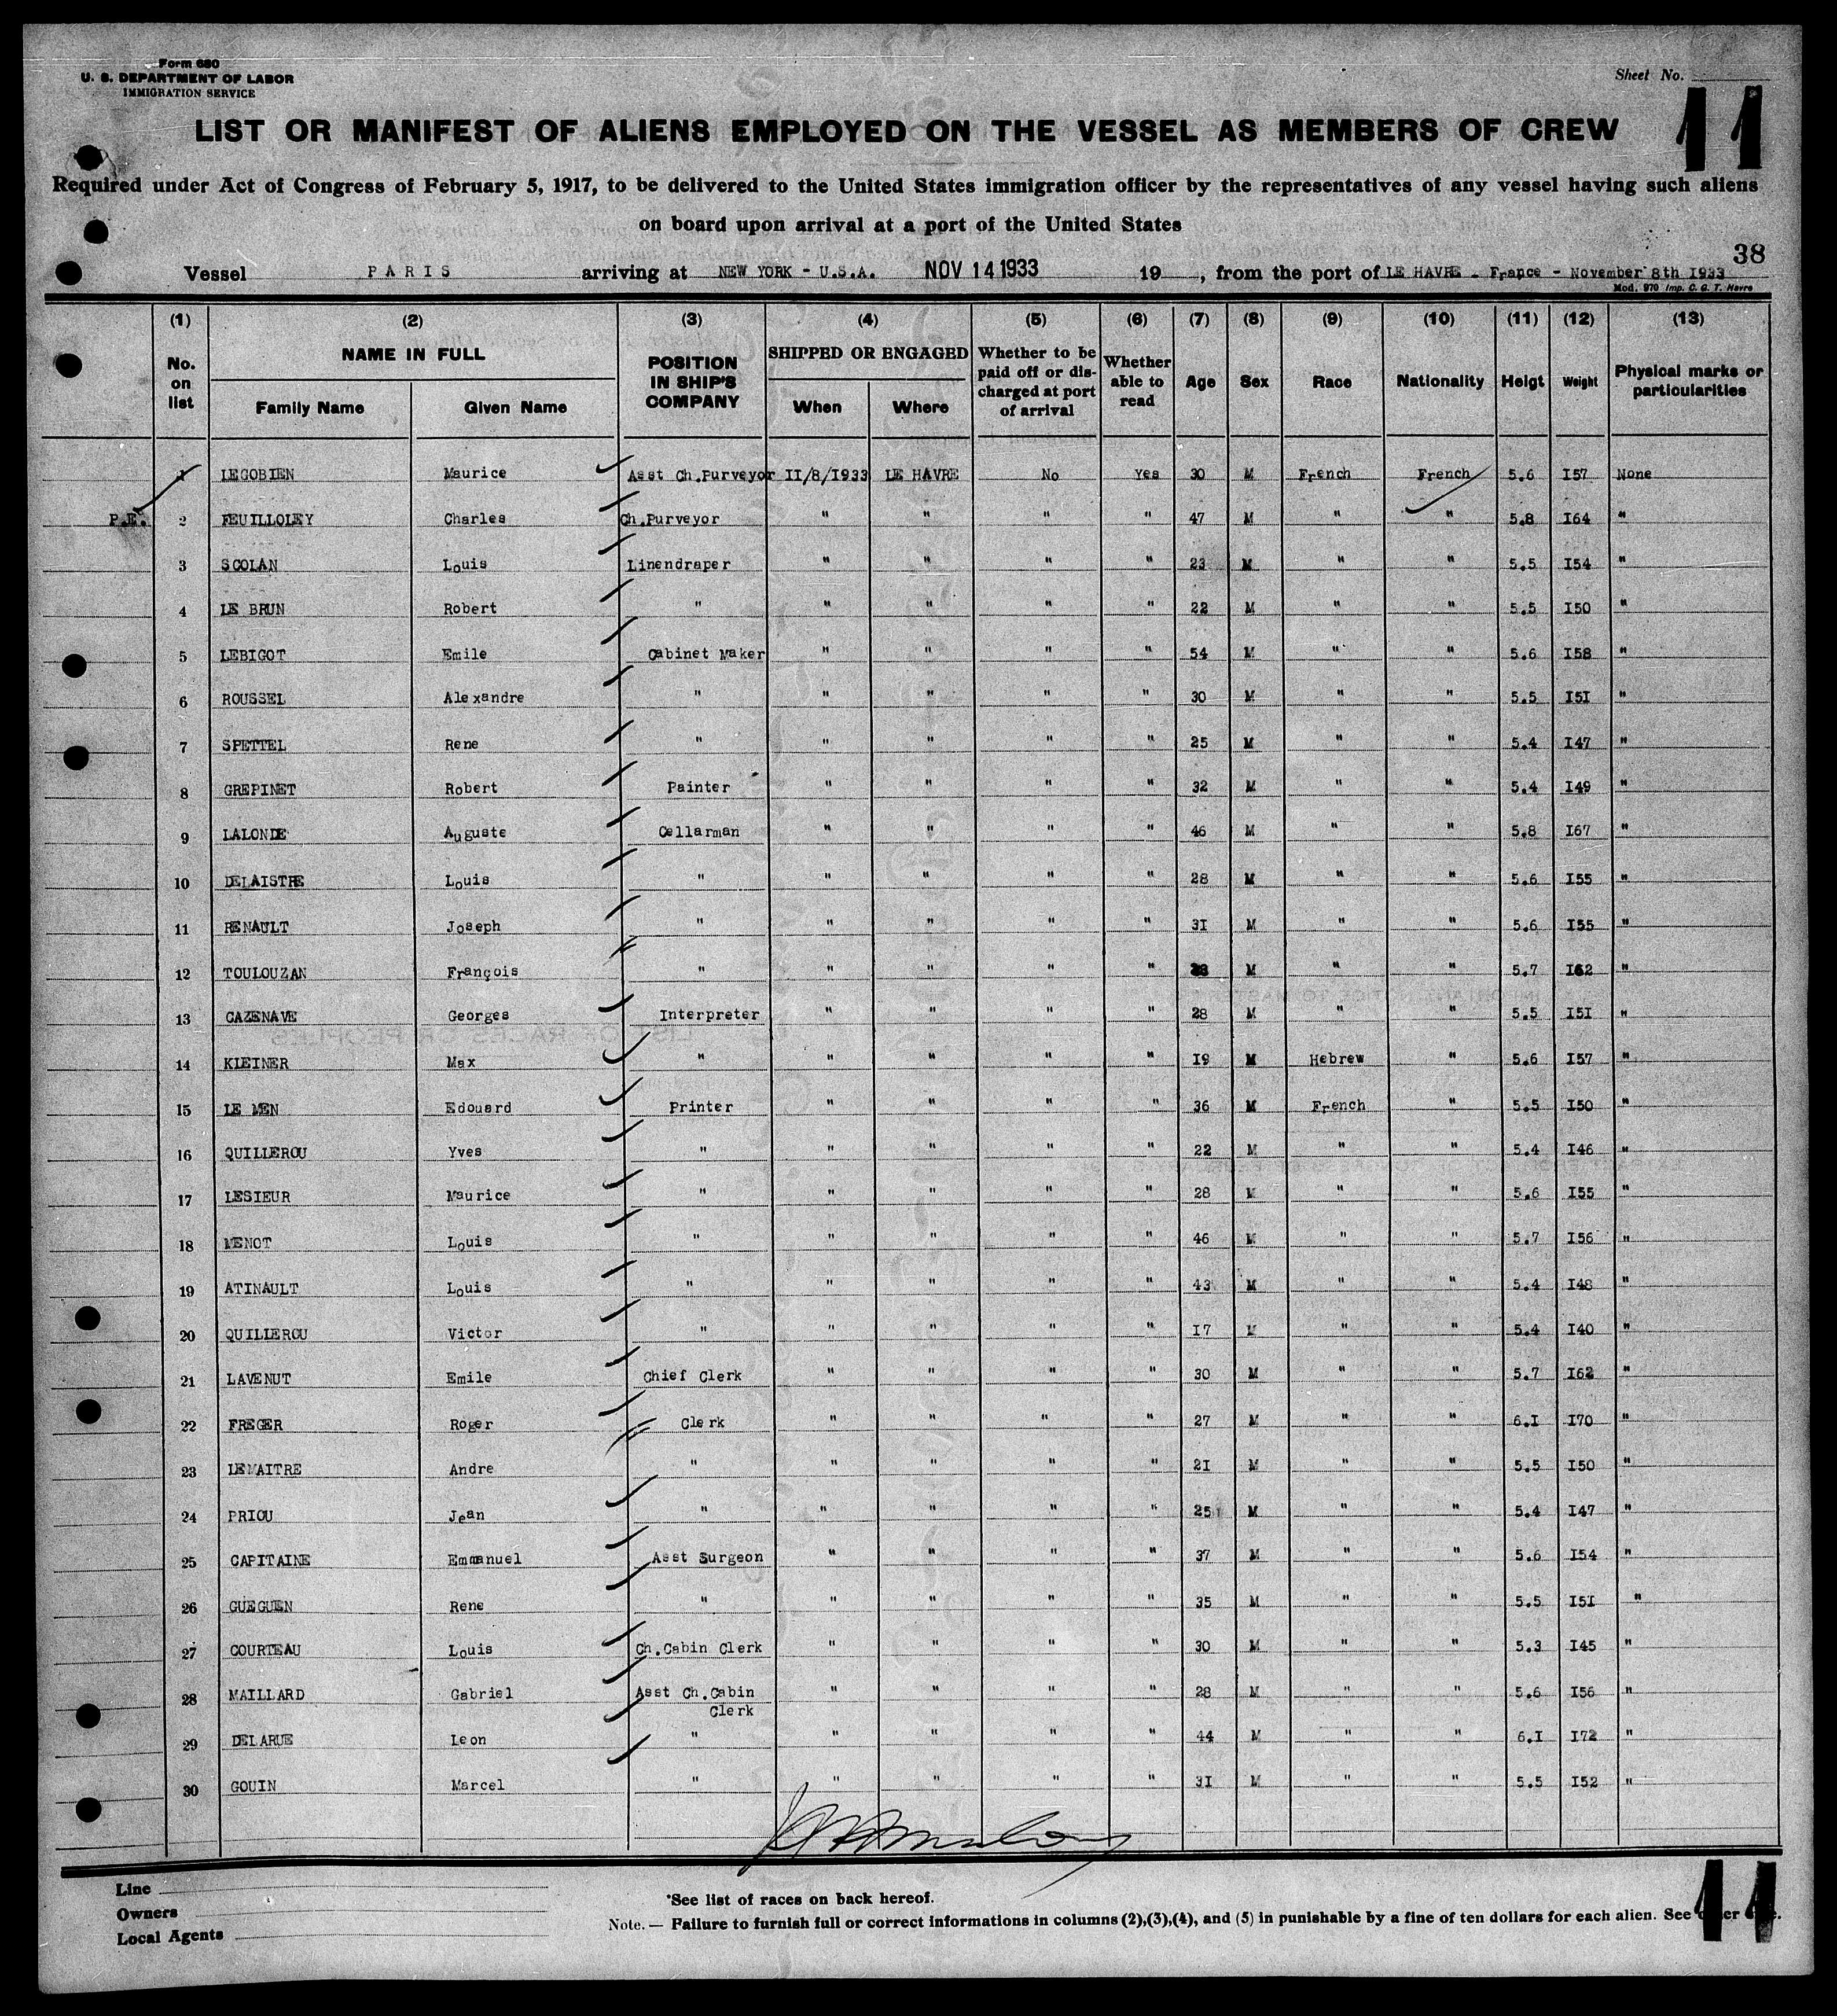 Form 680
U. S. DEPARTMENT OF LABOR
IMMIGRATION SERVICE
Sheet No.
11
LIST OR MANIFEST OF ALIENS EMPLOYED ON THE VESSEL AS MEMBERS OF CREW
Required under Act of Congress of February 5, 1917, to be delivered to the United States immigration officer by the representatives of any vessel having such aliens
on board upon arrival at a port of the United States
38
Vessel PARIS arriving at NEW YORK - U.S.A. NOV 14 1933 19 , from the port of LE HAVRE - France - November 8th I933
Mod. 970 Imp. C. G. T. Havre
(1) (2) (3) (4) (5) (6) (7) (8) (9) (10) (11) (12) (13)
No. on list NAME IN FULL Family Name Given Name POSITION IN SHIP'S COMPANY SHIPPED OR ENGAGED When Where Whether to be paid off or discharged at port of arrival Whether able to read Age Sex Race Nationality Heigt Weight Physical marks or particularities
1 LEGOBIEN Maurice Asst Ch.Purveyor II/8/I933 LE HAVRE No Yes 30 M French French 5.6 I57 None
P.E. 2 FEUILLOLEY Charles Ch.Purveyor " " " " 47 M " " 5.8 I64 "
3 SCOLAN Louis Linendraper " " " " 23 M " " 5.5 I54 "
4 LE BRUN Robert " " " " " 22 M " " 5.5 I50 "
5 LEBIGOT Emile Cabinet Maker " " " " 54 M " " 5.6 I58 "
6 ROUSSEL Alexandre " " " " " 30 M " " 5.5 I5I "
7 SPETTEL Rene " " " " " 25 M " " 5.4 I47 "
8 GREPINET Robert Painter " " " " 32 M " " 5.4 I49 "
9 LALONDE Auguste Cellarman " " " " 46 M " " 5.8 I67 "
10 DELAISTRE Louis " " " " " 28 M " " 5.6 I55 "
11 RENAULT Joseph " " " " " 3I M " " 5.6 I55 "
12 TOULOUZAN François " " " " " M " " 5.7 I62 "
13 CAZENAVE Georges Interpreter " " " " 28 M " " 5.5 I5I "
14 KLEINER Max " " " " " I9 M Hebrew " 5.6 I57 "
15 LE MEN Edouard Printer " " " " 36 M French " 5.5 I50 "
16 QUILLEROU Yves " " " " " 22 M " " 5.4 I46 "
17 LESIEUR Maurice " " " " " 28 M " " 5.6 I55 "
18 MENOT Louis " " " " " 46 M " " 5.7 I56 "
19 ATINAULT Louis " " " " " 43 M " " 5.4 I48 "
20 QUILLEROU Victor " " " " " I7 M " " 5.4 I40 "
21 LAVENUT Emile Chief Clerk " " " " 30 M " " 5.7 I62 "
22 FREGER Roger Clerk " " " " 27 M " " 6.I I70 "
23 LEMAITRE Andre " " " " " 2I M " " 5.5 I50 "
24 PRIOU Jean " " " " " 25 M " " 5.4 I47 "
25 CAPITAINE Emmanuel Asst Surgeon " " " " 37 M " " 5.6 I54 "
26 GUEGUEN Rene " " " " " 35 M " " 5.5 I5I "
27 COURTEAU Louis Ch.Cabin Clerk " " " " 30 M " " 5.3 I45 "
28 MAILLARD Gabriel Asst Ch.Cabin Clerk " " " " 28 M " " 5.6 I56 "
29 DELARUE Leon " " " " " 44 M " " 6.I I72 "
30 GOUIN Marcel " " " " " 3I M " " 5.5 I52 "
Line
Owners
Local Agents
*See list of races on back hereof.
Note. — Failure to furnish full or correct informations in columns (2),(3),(4), and (5) in punishable by a fine of ten dollars for each alien. See
11